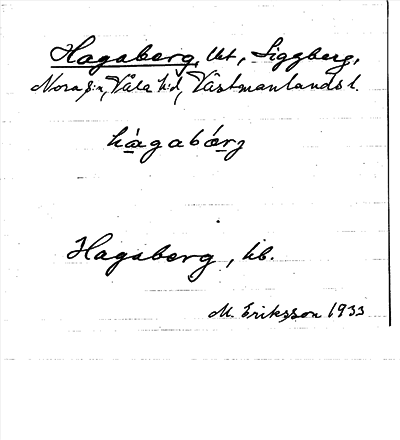 Hagaberg, lht, Siggberg,
Nora s:n, Våla h:d, Västmanlands l.
hàgabǽrz
Hagaberg, hb.
M. Eriksson 1933